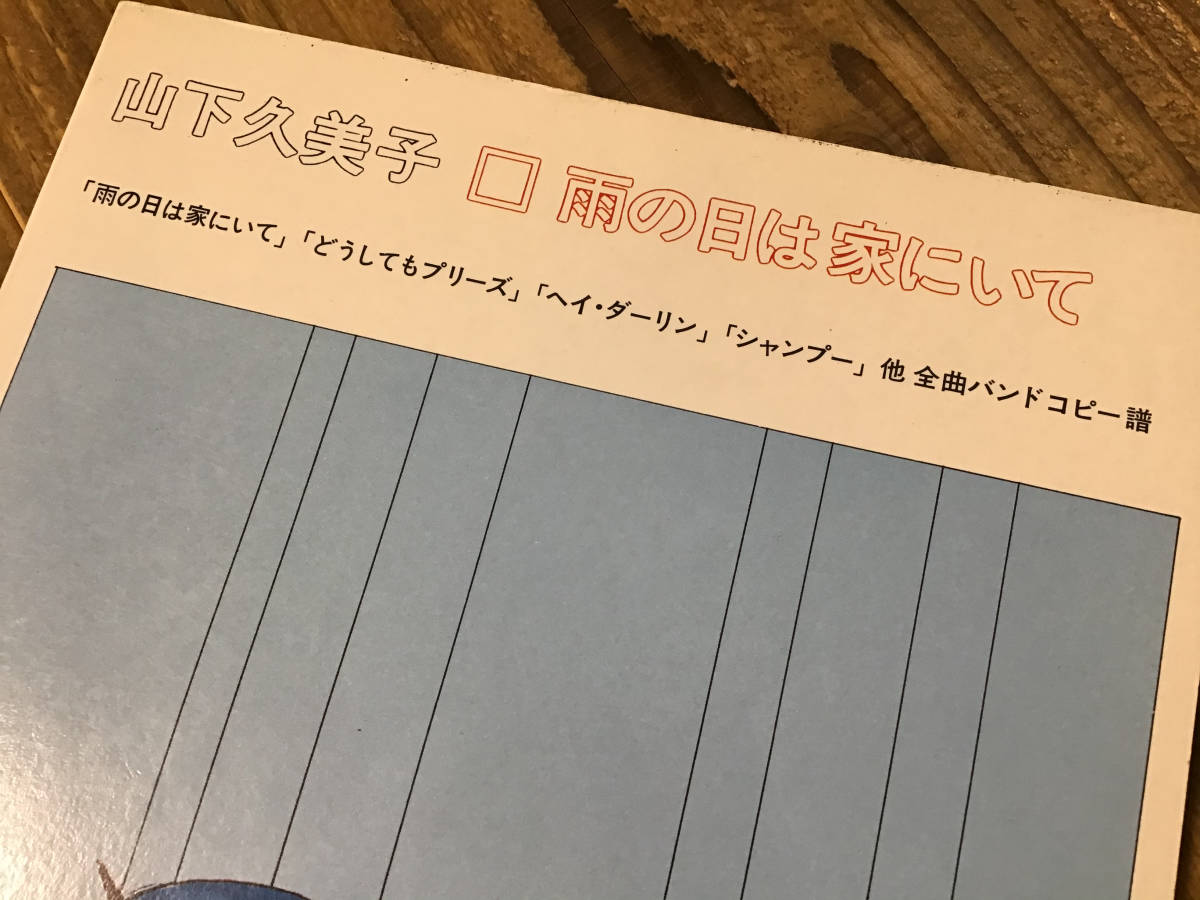 山下久美子 □ 雨の日は家にいて
「雨の日は家にいて」「どうしてもプリーズ」「ヘイ・ダーリン」「シャンプー」他 全曲バンドコピー譜